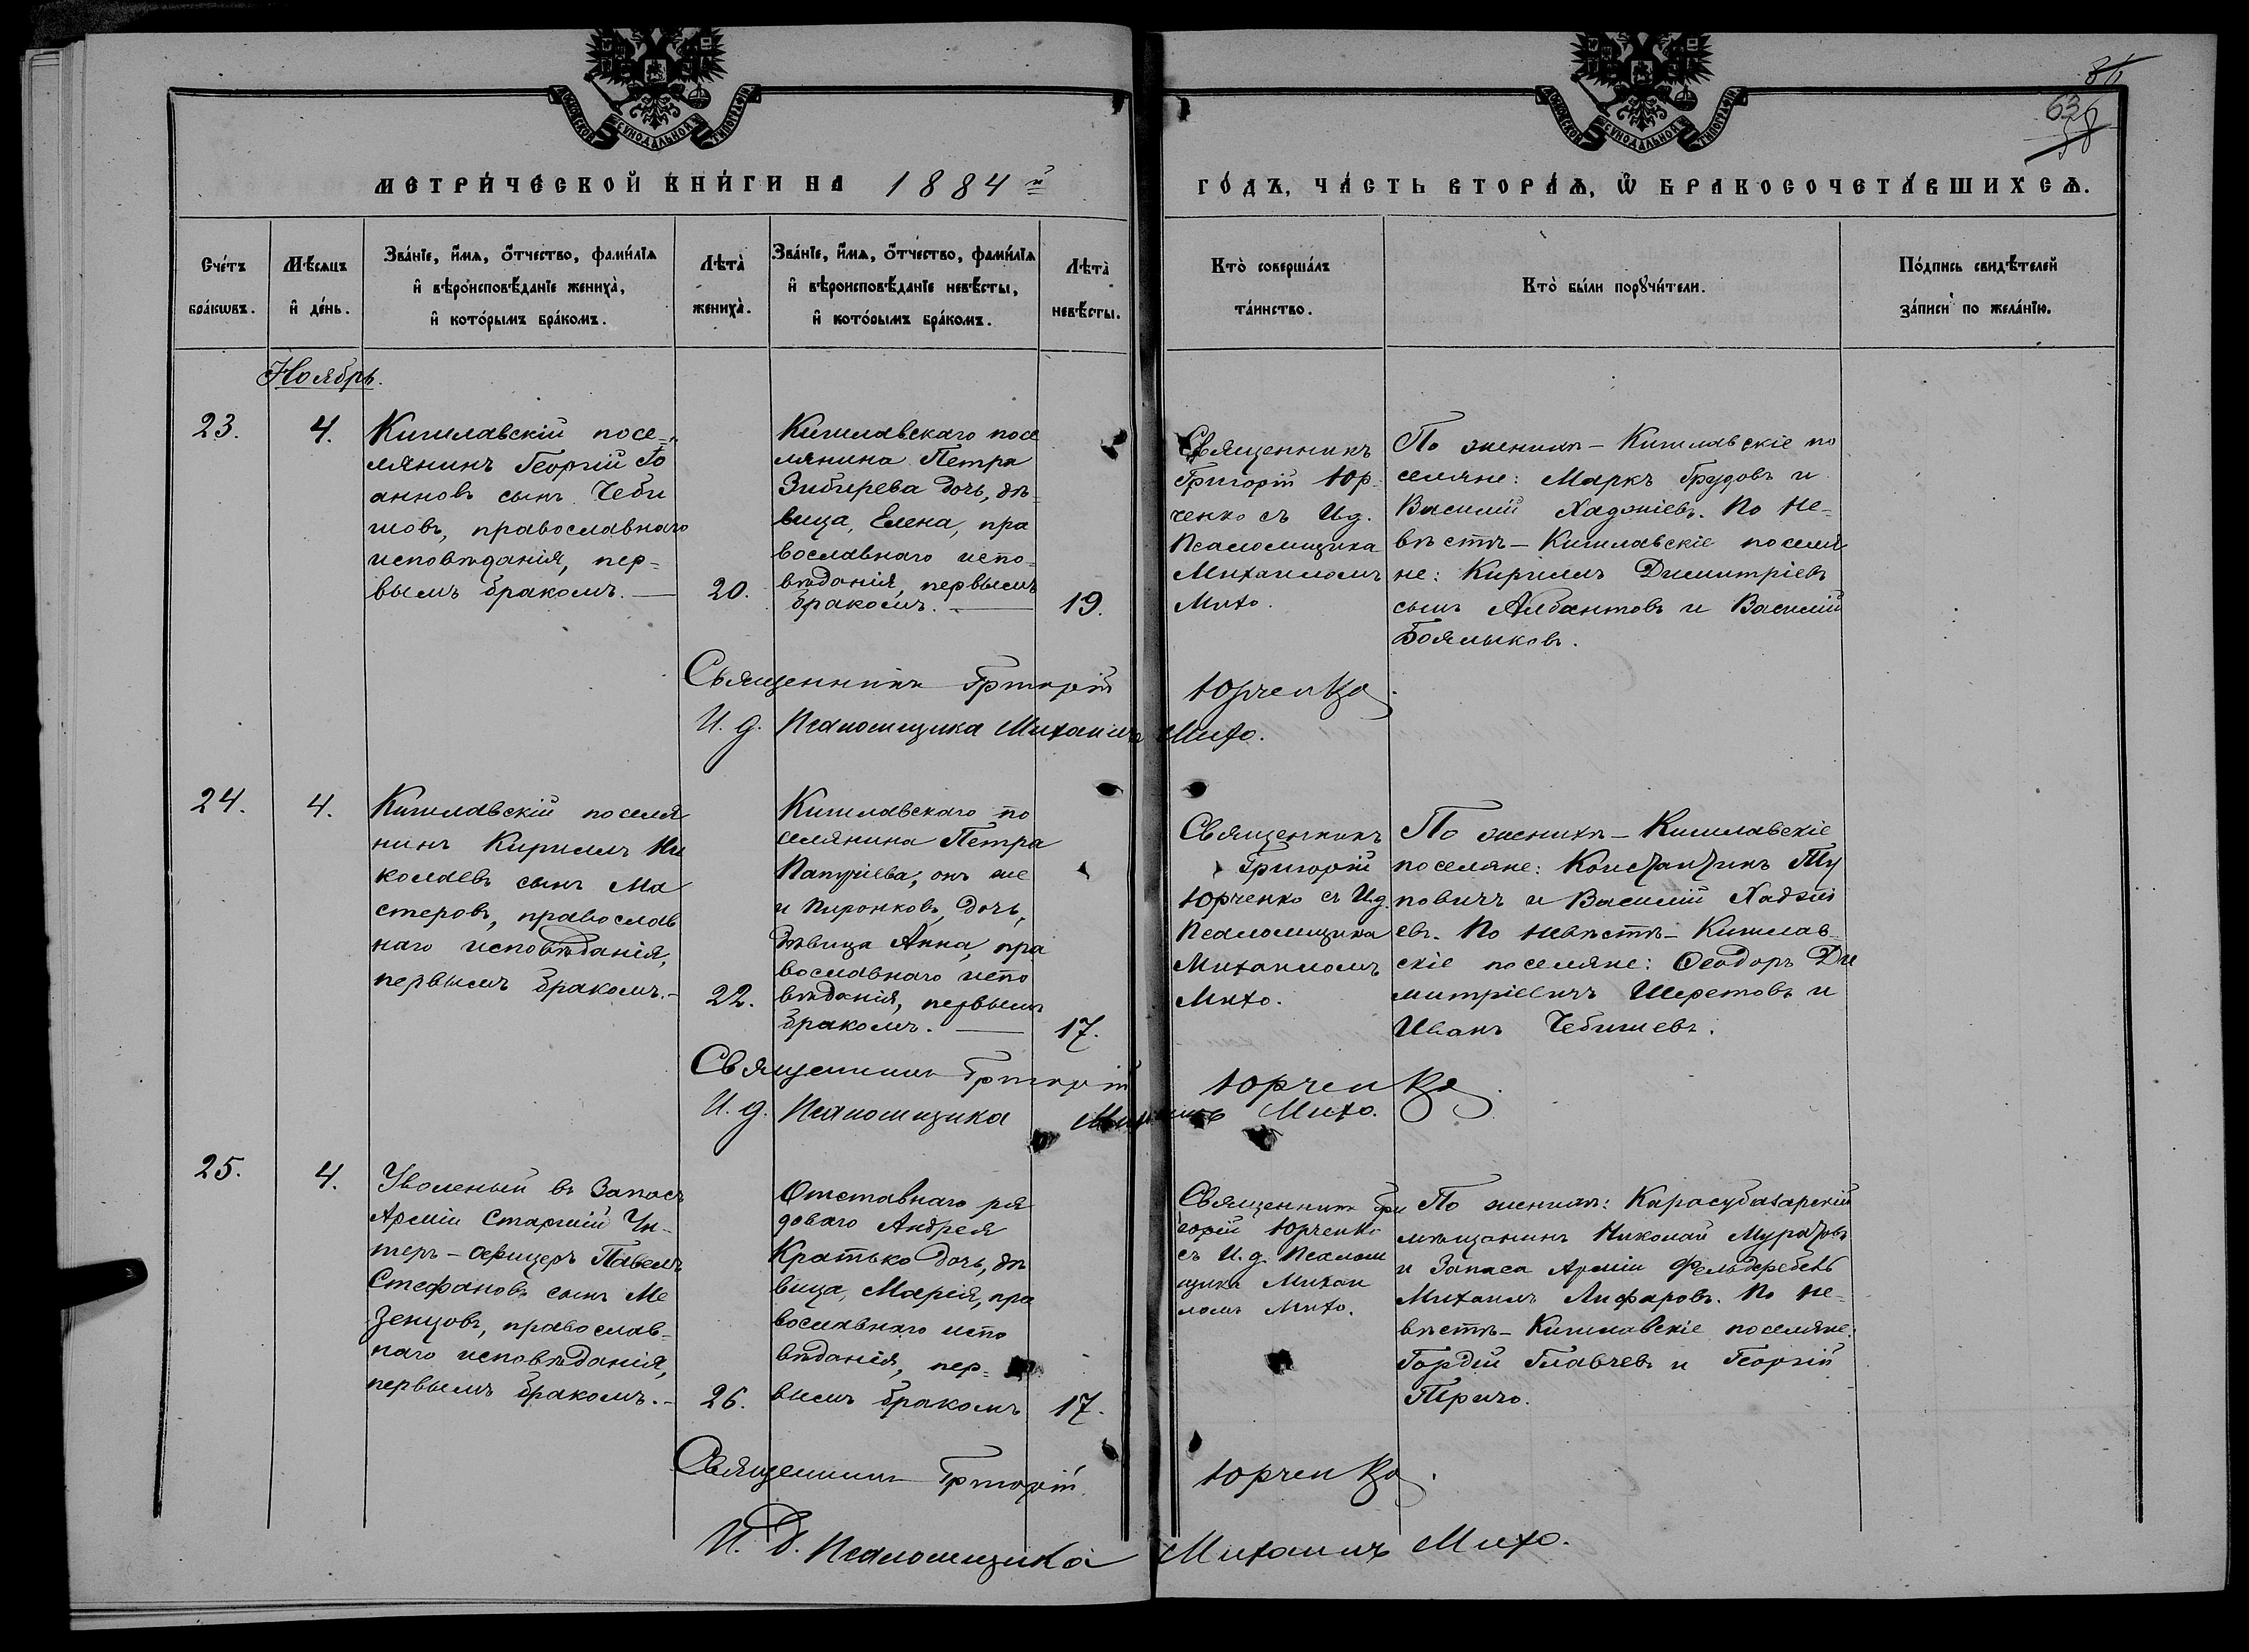 МОСКОВСКОЙ СѴНОДАЛЬНОЙ ТИПОГРАФІИ
МОСКОВСКОЙ СѴНОДАЛЬНОЙ ТИПОГРАФІИ
636
58
МЕТРИ́ЧЕСКОЙ КНИ́ГИ НА 1884й
ГО́ДЪ, ЧА́СТЬ ВТОРА́Ѧ, Ѿ БРАКОСОЧЕТА́ВШИХСѦ.
Сче́тъ
бра́кѡвъ.
Мѣ́сяцъ
и҆ де́нь.
Зва́нїе, и҆́мѧ, ѻ҆́тчество, фами́лїѧ
и҆ вѣроисповѣ́данїе жениха̀,
и҆ кото́рымъ бра́комъ.
Лѣта̀
жениха̀.
Зва́нїе, и҆́мѧ, ѻ҆́тчество, фами́лїѧ
и҆ вѣроисповѣ́данїе невѣ́сты,
и҆ кото́рымъ бра́комъ.
Лѣта̀
невѣ́сты.
Кто̀ соверша́лъ
та́инство.
Кто̀ бы́ли порꙋчи́тели.
По́дпись свидѣ́телей
за́писи по жела́нїю.
Ноябрь.
23.
4.
Кишлавскій посе-
лянинъ Георгій Іо
анновъ сынъ Чеби
шовъ, православнаго
исповѣданія, пер-
вымъ бракомъ.
20.
Кишлавскаго посе
лянина Петра
Зибирева дочь, дѣ-
вица, Елена, пра
вославнаго испо-
вѣданія, первымъ
бракомъ.
19.
Священникъ
Григорій Юр-
ченко съ И.д.
Псаломщика
Михаиломъ
Михо.
По женихѣ - Кишлавскіе по
селяне: Маркъ Грудовъ и
Василій Хаджіевъ. По не-
вѣстѣ - Кишлавскіе поселя
не: Кириллъ Димитріевъ
сынъ Албантовъ и Василій
Боялыковъ.
Священникъ Григорій Юрченко
И. д. Псаломщика Михаилъ Михо.
24.
4.
Кишлавскій поселя
нинъ Кириллъ Ни
колаевъ сынъ Ма
стеровъ, православ
наго исповѣданія,
первымъ бракомъ.-
22.
Кишлавскаго по
селянина Петра
онъ же
и Пиронковъ, дочь,
дѣвица Анна, пра
вославнаго испо
вѣданія, первымъ
бракомъ.
17.
Священникъ
Григорій
Юрченко съ И.д.
Псаломщика
Михаиломъ
Михо.
По женихѣ - Кишлавскіе
поселяне: Константинъ Ту
повичъ и Василій Хаджі
евъ. По невѣстѣ - Кишлав-
скіе поселяне: Ѳеодоръ Ди
митріевичъ Шеретовъ и
Иванъ Чебишевъ.
Священникъ Григорій Юрченко
И. д. Псаломщика Михаилъ Михо.
25.
4.
Уволеный въ Запасъ
Арміи Старшій Ун-
теръ-офицеръ Павелъ
Стефановъ сынъ Ме
зенцовъ, православ-
наго исповѣданія,
первымъ бракомъ.-
26.
Отставнаго ря
доваго Андрея
Кратько дочь, дѣ
вица, Марія, пра
вославнаго испо
вѣданія, пер-
вымъ бракомъ
17.
Священникъ Гри
горій Юрченко
съ И. д. Псалом
щика Михаи
ломъ Михо.
По женихѣ: Карасубазарскій
мѣщанинъ Николай Муратовъ
и Запаса Арміи Фельдфебель
Михаилъ Анфаровъ. По не-
вѣстѣ - Кишлавскіе поселяне:
Гордій Главчевъ и Георгій
Причо.
Священникъ Григорій Юрченко.
И. д. Псаломщика Михаилъ Михо.